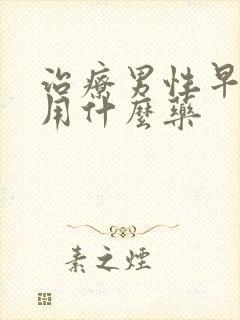 治療男性早
用什麼藥
素之煙